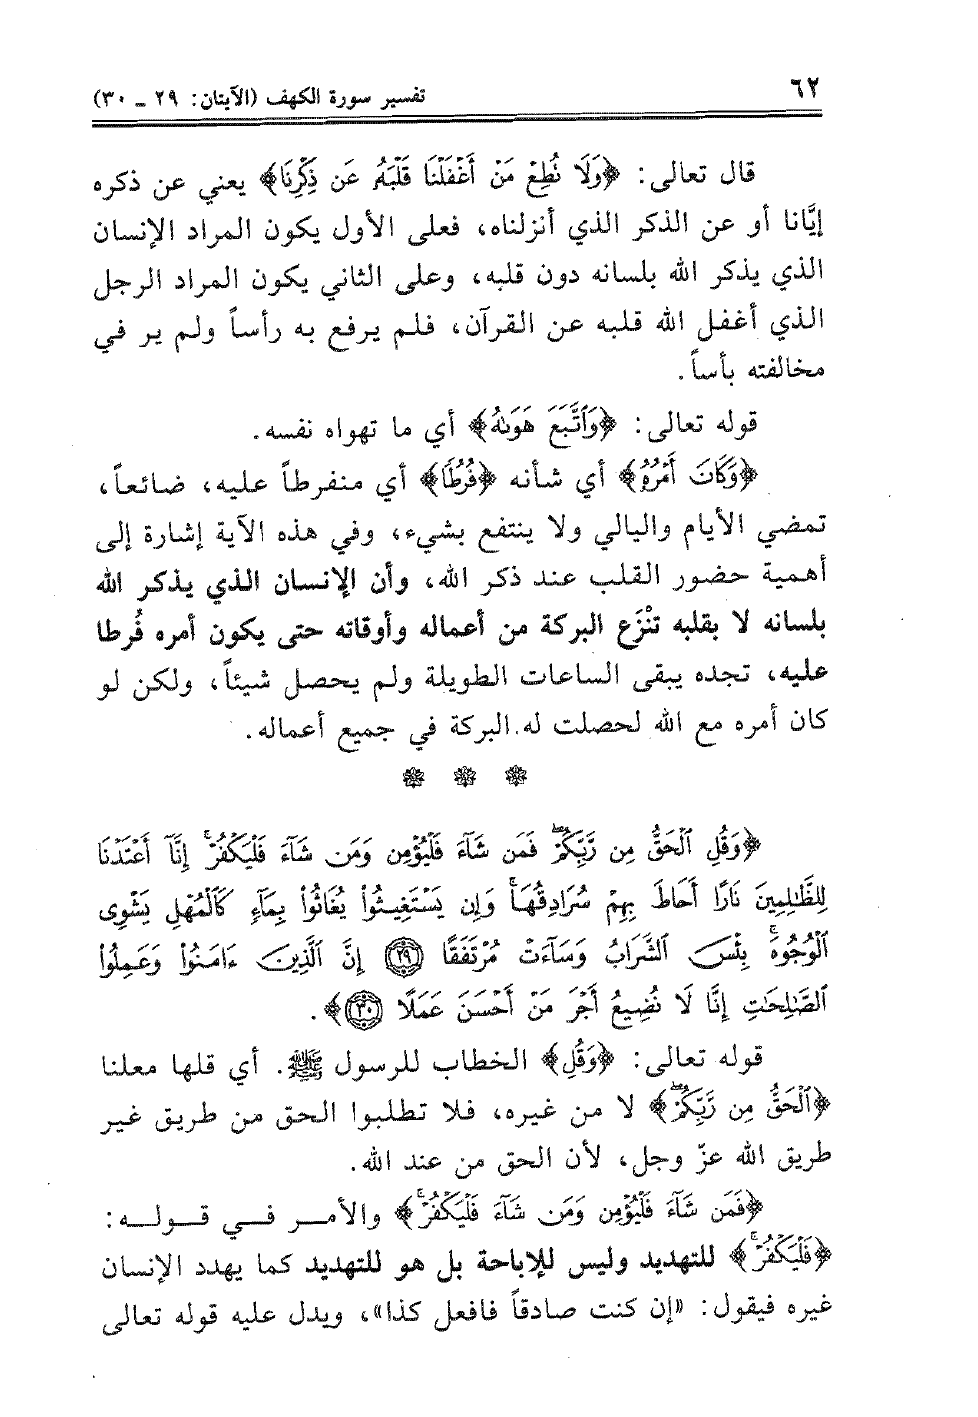 ٦٢
تفسير سورة الكهف (الآيتان: ٢٩ ـ ٣٠)
قال تعالى: ﴿وَلَا نُطِعْ مَنْ أَغْفَلْنَا قَلْبَهُ عَن ذِكْرِنَا﴾ يعني عن ذكره
إيَّانا أو عن الذكر الذي أنزلناه، فعلى الأول يكون المراد الإنسان
الذي يذكر الله بلسانه دون قلبه، وعلى الثاني يكون المراد الرجل
الذي أغفل الله قلبه عن القرآن، فلم يرفع به رأساً ولم ير في
مخالفته بأساً.
قوله تعالى: ﴿وَٱتَّبَعَ هَوَىٰهُ﴾ أي ما تهواه نفسه.
﴿وَكَانَ أَمْرُهُ﴾ أي شأنه ﴿فُرُطًا﴾ أي منفرطاً عليه، ضائعاً،
تمضي الأيام والليالي ولا ينتفع بشيء، وفي هذه الآية إشارة إلى
أهمية حضور القلب عند ذكر الله، وأن الإنسان الذي يذكر الله
بلسانه لا بقلبه تنْزَع البركة من أعماله وأوقاته حتى يكون أمره فُرطا
عليه، تجده يبقى الساعات الطويلة ولم يحصل شيئاً، ولكن لو
كان أمره مع الله لحصلت له البركة في جميع أعماله.
﴿وَقُلِ ٱلْحَقُّ مِن رَّبِّكُمْ ۖ فَمَن شَآءَ فَلْيُؤْمِن وَمَن شَآءَ فَلْيَكْفُرْ ۚ إِنَّآ أَعْتَدْنَا
لِلظَّـٰلِمِينَ نَارًا أَحَاطَ بِهِمْ سُرَادِقُهَا ۚ وَإِن يَسْتَغِيثُوا۟ يُغَاثُوا۟ بِمَآءٍ كَٱلْمُهْلِ يَشْوِى
ٱلْوُجُوهَ ۚ بِئْسَ ٱلشَّرَابُ وَسَآءَتْ مُرْتَفَقًا ٢٩ إِنَّ ٱلَّذِينَ ءَامَنُوا۟ وَعَمِلُوا۟
ٱلصَّـٰلِحَـٰتِ إِنَّا لَا نُضِيعُ أَجْرَ مَنْ أَحْسَنَ عَمَلًا ٣٠﴾.
قوله تعالى: ﴿وَقُلِ﴾ الخطاب للرسول ﷺ. أي قلها معلنا
﴿ٱلْحَقُّ مِن رَّبِّكُمْ ۖ﴾ لا من غيره، فلا تطلبوا الحق من طريق غير
طريق الله عزّ وجل، لأن الحق من عند الله.
﴿فَمَن شَآءَ فَلْيُؤْمِن وَمَن شَآءَ فَلْيَكْفُرْ ۚ﴾ والأمـر فـي قـولـه:
﴿فَلْيَكْفُرْ ۚ﴾ للتهديد وليس للإباحة بل هو للتهديد كما يهدد الإنسان
غيره فيقول: «إن كنت صادقاً فافعل كذا»، ويدل عليه قوله تعالى